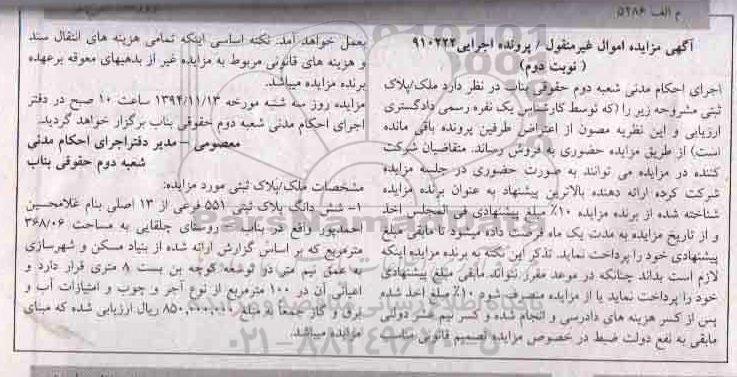 م الف ۵۲۸۶
آگهی مزایده اموال غیرمنقول / پرونده اجرایی ۹۱۰۲۲۲
( نوبت دوم)
اجرای احکام مدنی شعبه دوم حقوقی بناب در نظر دارد ملک/پلاک
ثبتی مشروحه زیر را (که توسط کارشناس یک نفره رسمی دادگستری
ارزیابی و این نظریه مصون از اعتراض طرفین پرونده باقی مانده
است) از طریق مزایده حضوری به فروش رساند. متقاضیان شرکت
کننده در مزایده می توانند به صورت حضوری در جلسه مزایده
شرکت کرده ارائه دهنده بالاترین پیشنهاد به عنوان برنده مزایده
شناخته شده از برنده مزایده ۱۰٪ مبلغ پیشنهادی فی المجلس اخذ
و از تاریخ مزایده به مدت یک ماه فرصت داده میشود تا مابقی مبلغ
پیشنهادی خود را پرداخت نماید. تذکر این نکته به برنده مزایده اینکه
لازم است بداند چنانکه در موعد مقرر نتواند مابقی مبلغ پیشنهادی
خود را پرداخت نماید یا از مزایده منصرف شود ۱۰٪ مبلغ اخذ شده
پس از کسر هزینه های دادرسی و انجام شده و کسر نیم عشر دولتی
مابقی به نفع دولت ضبط در خصوص مزایده تصمیم قانونی مناسب
بعمل خواهد آمد. نکته اساسی اینکه تمامی هزینه های انتقال سند
و هزینه های قانونی مربوط به مزایده غیر از بدهیهای معوقه برعهده
برنده مزایده میباشد.
مزایده روز سه شنبه مورخه ۱۳۹۴/۱۱/۱۳ ساعت ۱۰ صبح در دفتر
اجرای احکام مدنی شعبه دوم حقوقی بناب برگزار خواهد گردید.
معصومی – مدیر دفتراجرای احکام مدنی
شعبه دوم حقوقی بناب
مشخصات ملک/پلاک ثبتی مورد مزایده:
۱- شش دانگ پلاک ثبتی ۵۵۱ فرعی از ۱۳ اصلی بنام غلامحسین
احمدپور واقع در بناب – روستای چلقایی به مساحت ۳۶۸/۰۶
مترمربع که بر اساس گزارش ارائه شده از بنیاد مسکن و شهرسازی
به عمق نیم متر در توسعه کوچه بن بست ۸ متری قرار دارد و
اعیانی آن در ۱۰۰ مترمربع از نوع آجر و چوب و امتیازات آب و
برق و گاز جمعاً به مبلغ ۸۵۰,۰۰۰,۰۰۰ ریال ارزیابی شده که مبنای
مزایده میباشد.
ParsNamaddata
۰۲۱-۸۸۳۴۹۶۷۰-۵